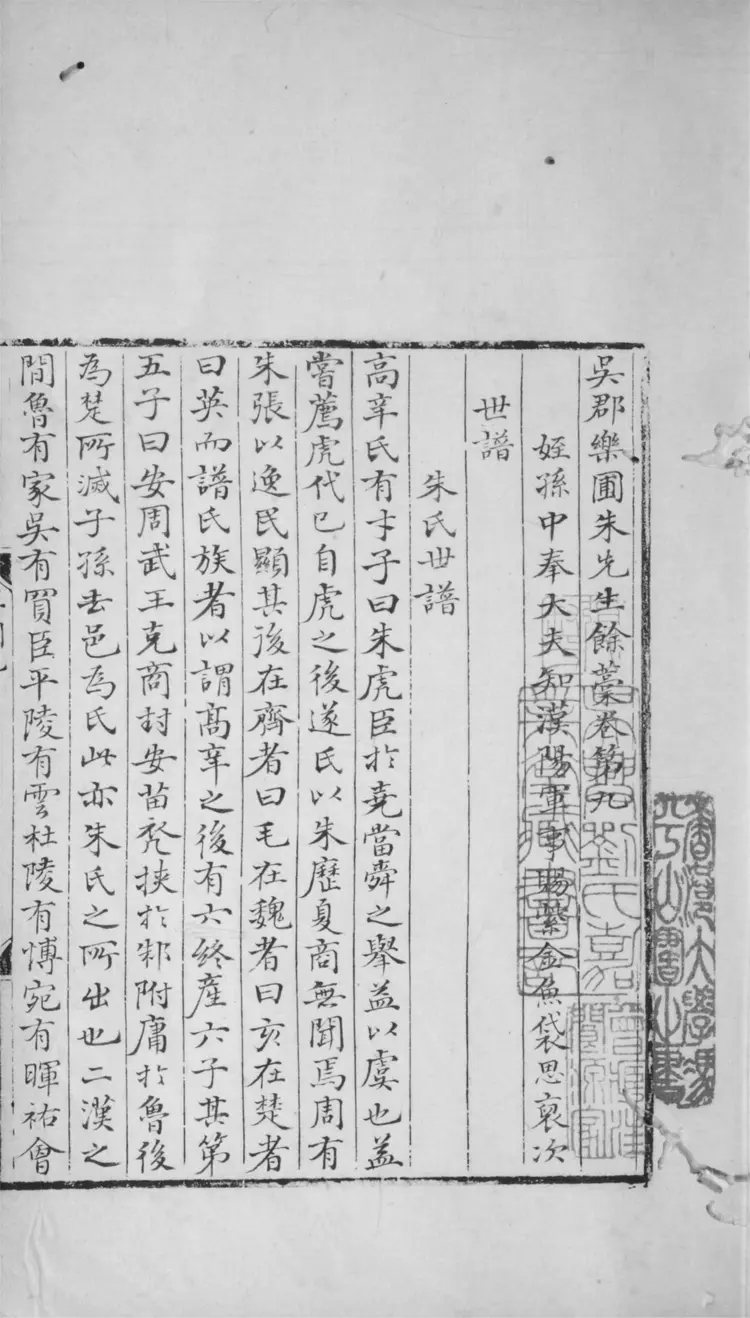 吳郡樂圃朱先生餘藁卷第九
姪孫中奉大夫知漢陽軍事賜紫金魚袋思裒次
世譜
朱氏世譜
高辛氏有才子曰朱虎臣於堯當舜之舉益以虞也益
嘗薦虎代已自虎之後遂氏以朱歷夏商無聞焉周有
朱張以逸民顯其後在齊者曰毛在魏者曰亥在楚者
曰英而譜氏族者以謂高辛之後有六終產六子其第
五子曰安周武王克商封安苗裔挾於邾附庸於魯後
為楚所滅子孫去邑為氏此亦朱氏之所出也二漢之
間魯有家吳有買臣平陵有雲杜陵有博宛有暉祐會